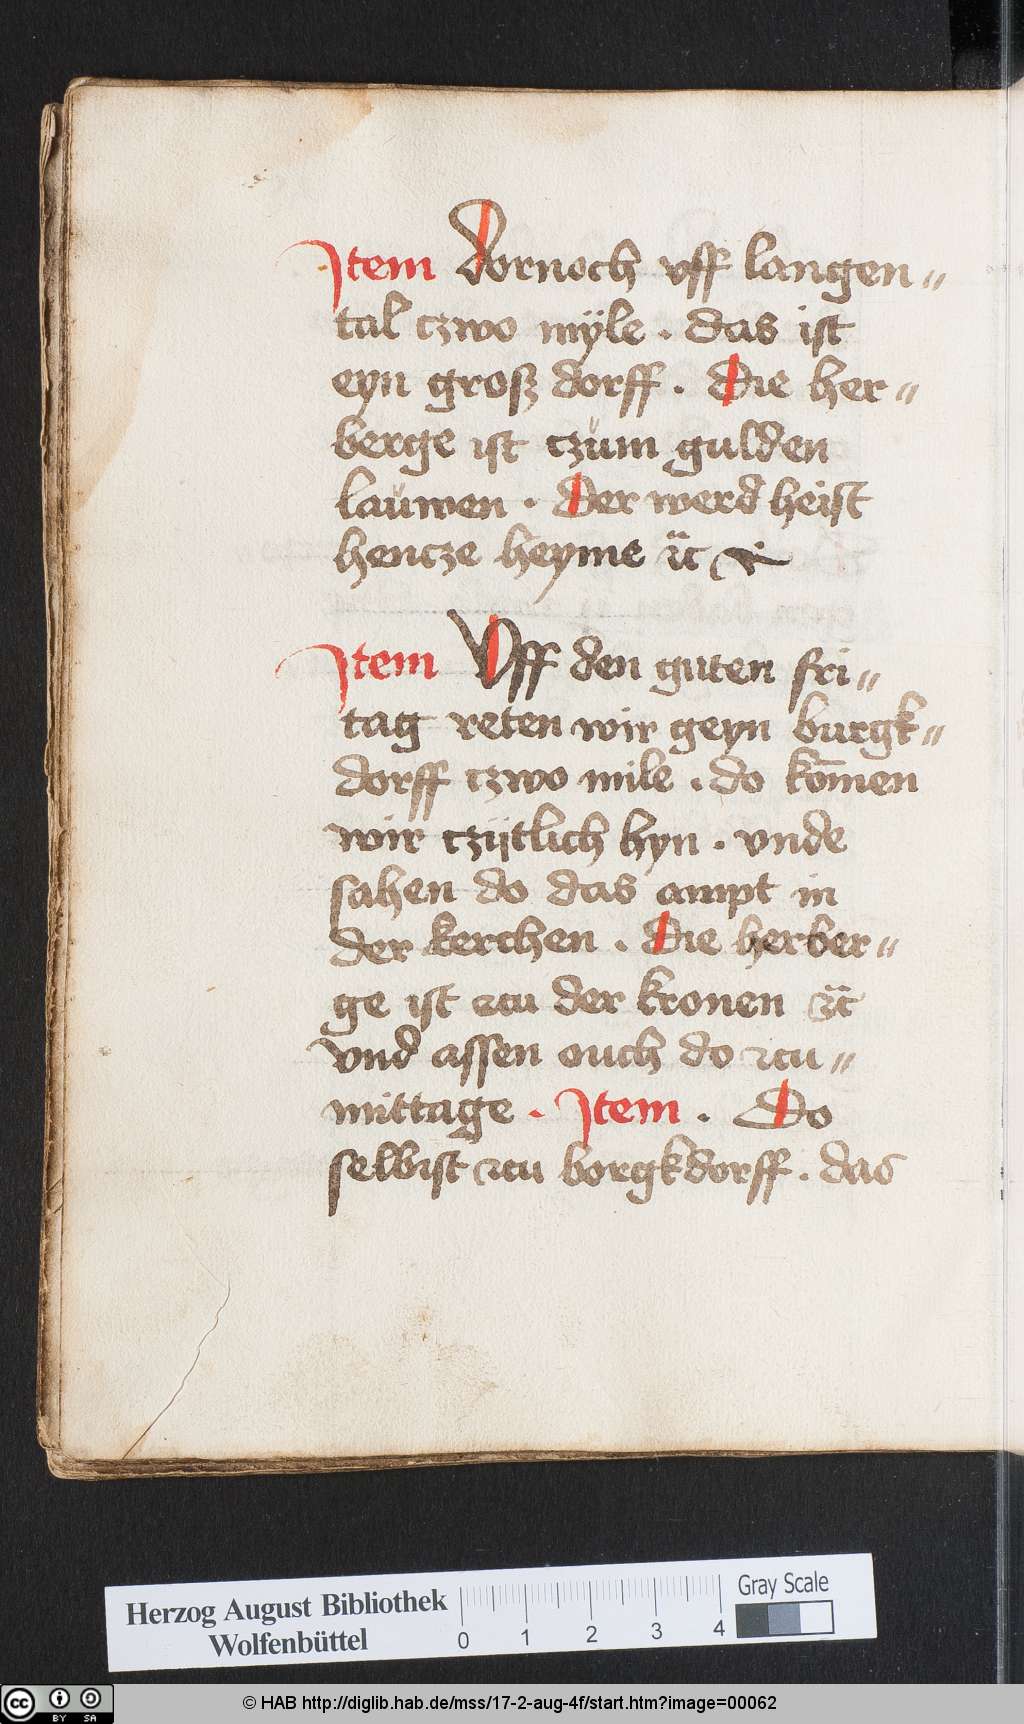 Item Dornoch vff langen〃
tal czwo mÿle . das ist
eyn groß dorff . Die her〃
berge ist czům gulden
lauwen . Der werd heist
hencze heyme ꝛc
Item Vff den guten fri〃
tag reten wir geyn burgk〃
dorff czwo mile . do kōmen
wir czijtlich hyn . vnde
sahen do das ampt in
der kerchen . Die herber〃
ge ist zcu der kronen ꝛc
vnd assen ouch do zcu〃
mittage . Item . Do
selbist zcu borgkdorff . das
Herzog August Bibliothek
Wolfenbüttel
0 1 2 3 4
Gray Scale
cc BY SA
© HAB http://diglib.hab.de/mss/17-2-aug-4f/start.htm?image=00062